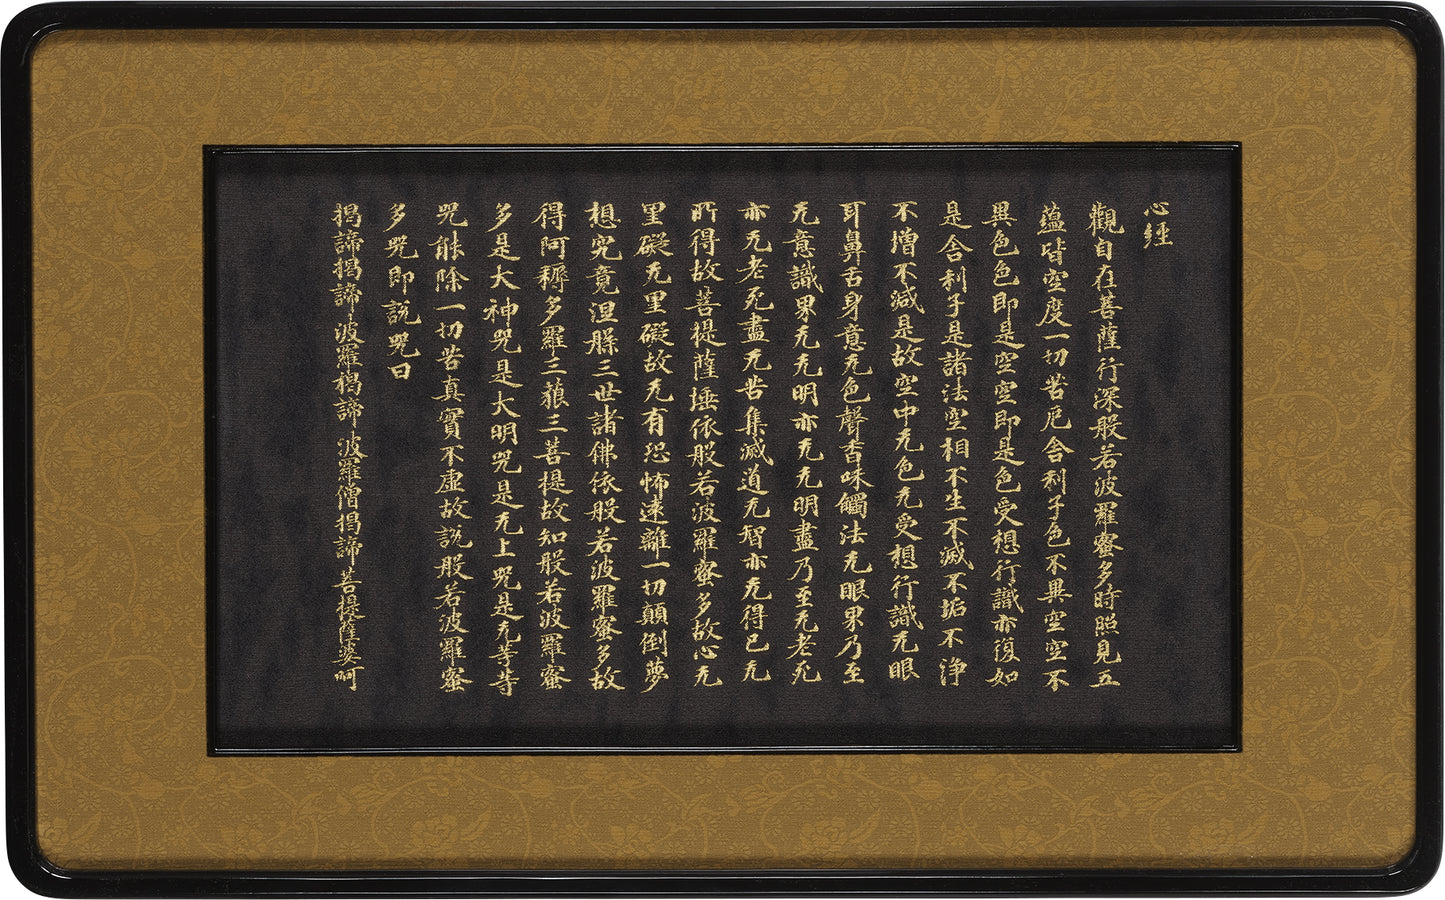 心經
觀自在菩薩行深般若波羅蜜多時照見五
蘊皆空度一切苦厄舍利子色不異空空不
異色色即是空空即是色受想行識亦復如
是舍利子是諸法空相不生不滅不垢不浄
不增不減是故空中无色无受想行識无眼
耳鼻舌身意无色聲香味觸法无眼界乃至
无意識界无无明亦无无明盡乃至无老死
亦无老死盡无苦集滅道无智亦无得已无
所得故菩提薩埵依般若波羅蜜多故心无
罣礙无罣礙故无有恐怖遠離一切顛倒夢
想究竟涅槃三世諸佛依般若波羅蜜多故
得阿耨多羅三藐三菩提故知般若波羅蜜
多是大神咒是大明咒是无上咒是无等等
咒能除一切苦真實不虛故說般若波羅蜜
多咒即說咒曰
揭諦揭諦波羅揭諦波羅僧揭諦菩提薩婆呵